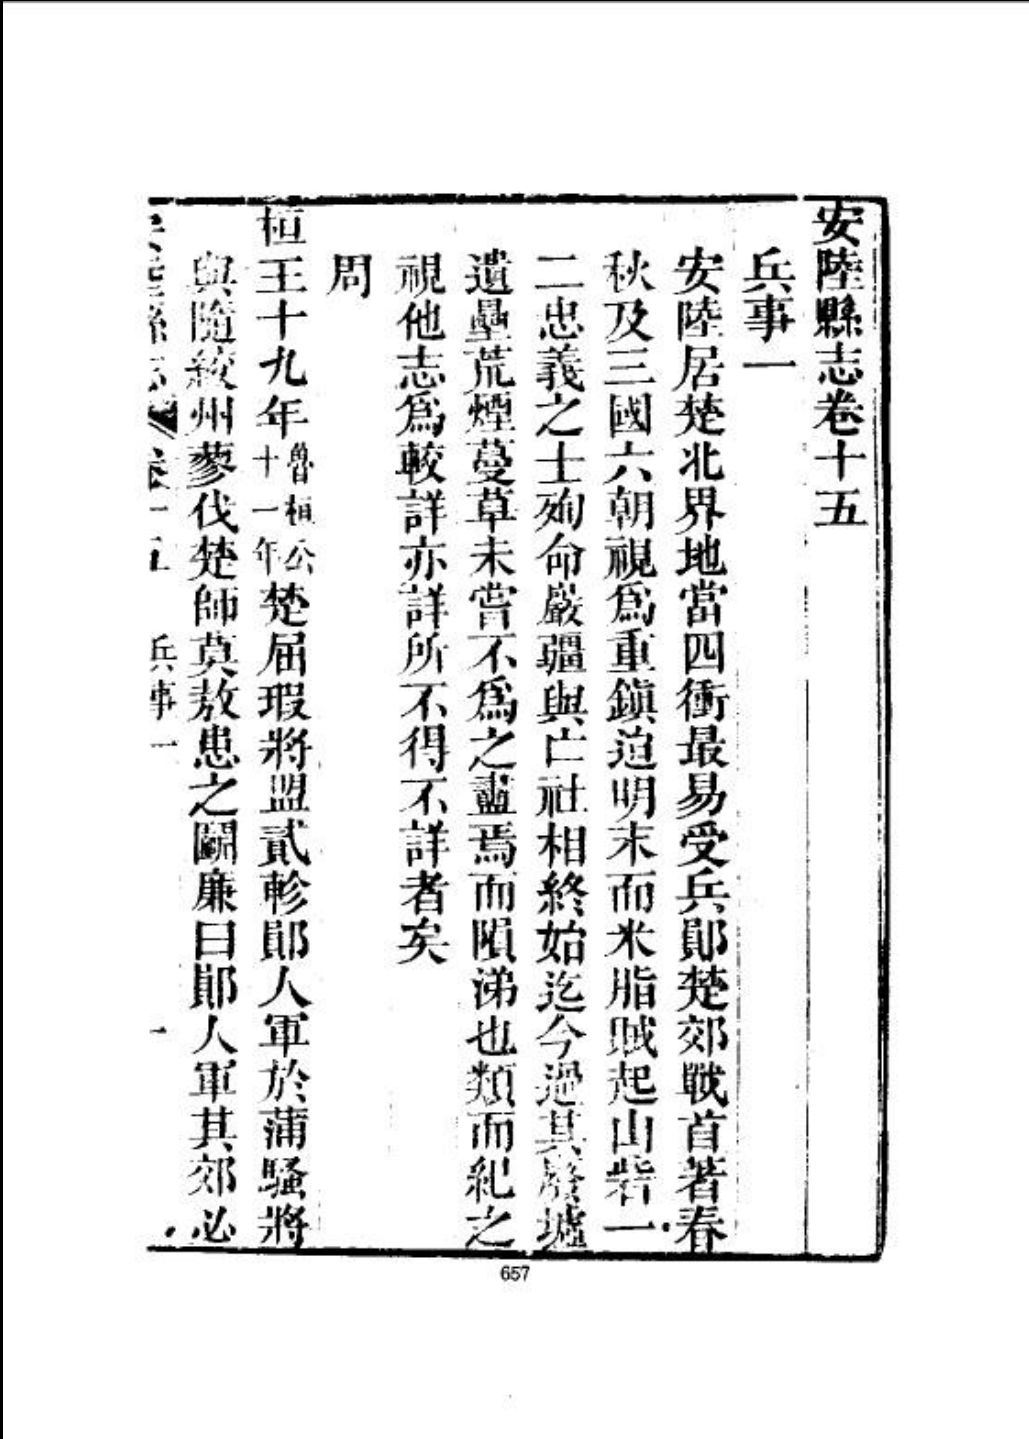 安陸縣志卷十五
兵事一
安陸居楚北界地當四衝最易受兵鄖楚郊戰首著春
秋及三國六朝視爲重鎭迨明末而米脂賊起山砦一
二忠義之士殉命嚴疆與亡社相終始迄今過其廢墟
遺壘荒煙蔓草未嘗不爲之衋焉而隕涕也類而紀之
視他志爲較詳亦詳所不得不詳者矣
周
桓王十九年魯桓公十一年楚屈瑕將盟貳軫鄖人軍於蒲騷將
與隨絞州蓼伐楚師莫敖患之鬭廉曰鄖人軍其郊必
安陸縣志 卷十五 兵事一 一
657